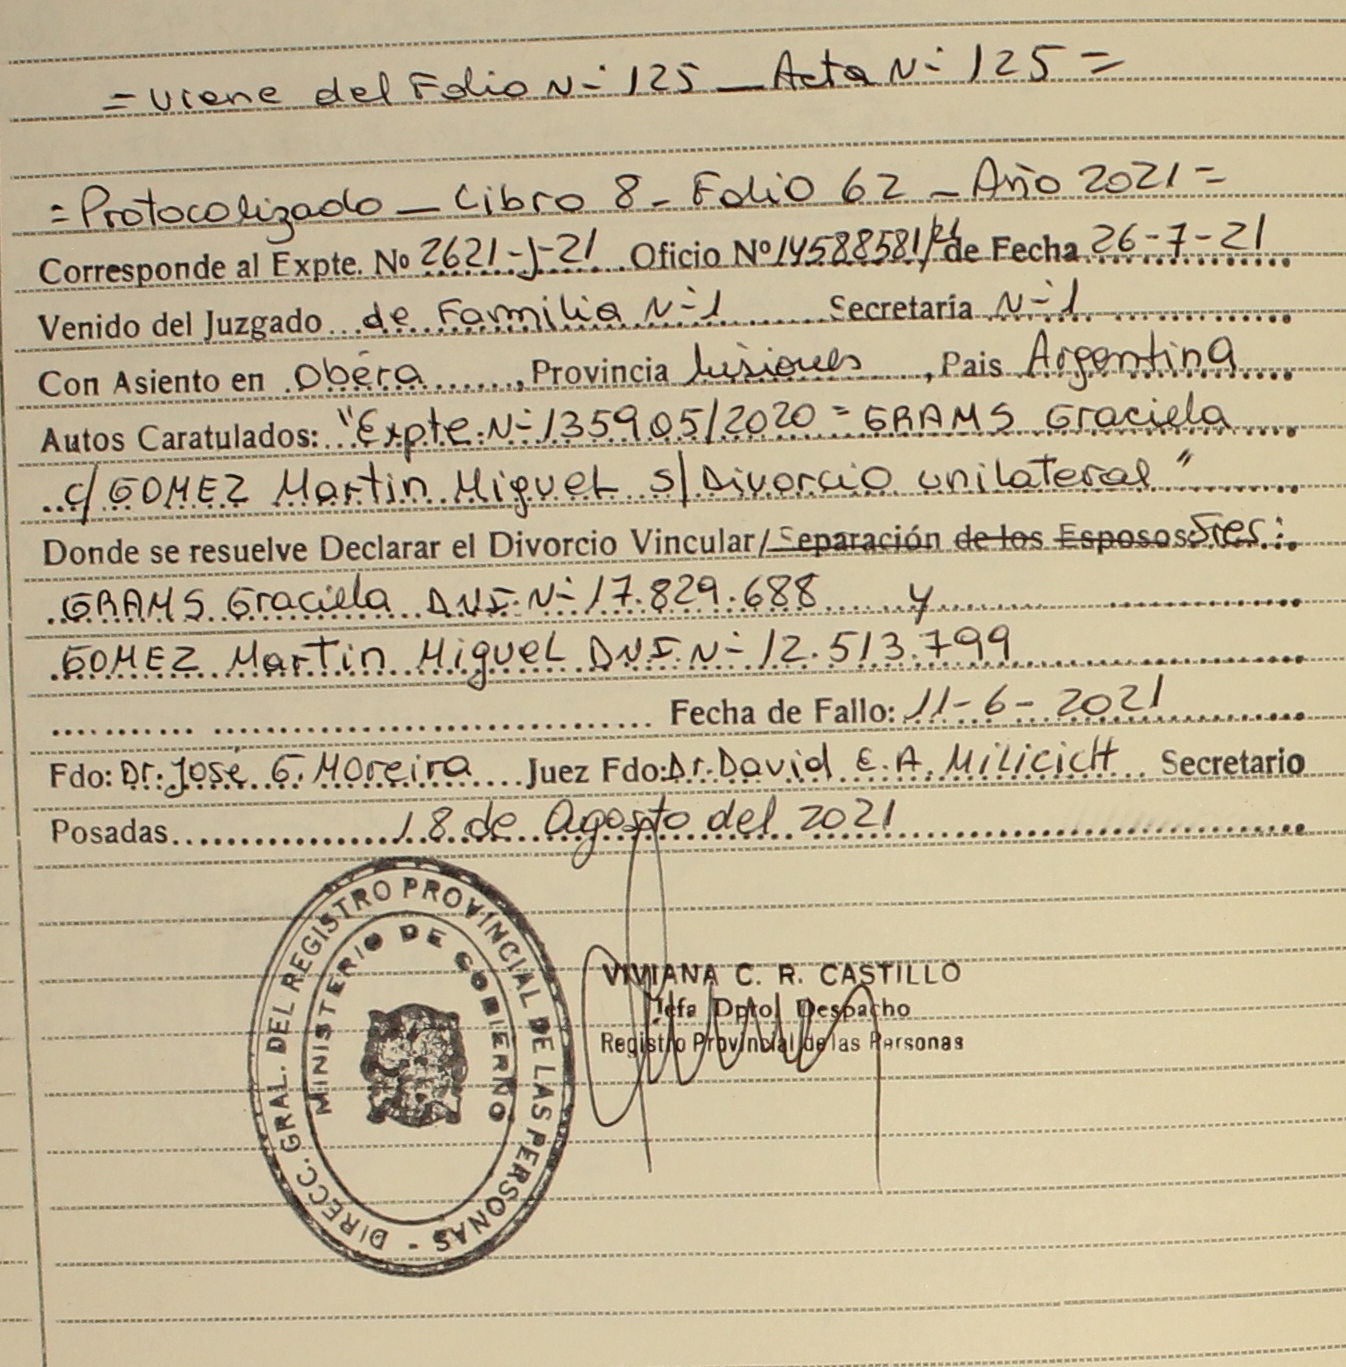 = Viene del Folio N- 125 _ Acta N- 125 =
= Protocolizado _ Libro 8 - Folio 62 - Año 2021 =
Corresponde al Expte. Nº 2621-J-21 Oficio Nº 14588581/21 de Fecha 26-7-21
Venido del Juzgado de Familia N-1 Secretaría N-1
Con Asiento en Oberá, Provincia Misiones, Pais Argentina
Autos Caratulados: "Expte. N- 135905/2020 = GRAMS Graciela
c/ GOMEZ Martin Miguel s/ Divorcio unilateral"
Donde se resuelve Declarar el Divorcio Vincular/Separación de los Esposos: Sres:
GRAMS Graciela DNI. N- 17.829.688 y
GOMEZ Martin Miguel DNI. N- 12.513.799
Fecha de Fallo: 11-6-2021
Fdo: Dr. José G. Moreira Juez Fdo: Dr. David E. A. Milicich Secretario
Posadas 18 de Agosto del 2021
DIRECC. GRAL. DEL REGISTRO PROVINCIAL DE LAS PERSONAS -
MINISTERIO DE GOBIERNO
VIVIANA C. R. CASTILLO
Jefa Dpto. Despacho
Registro Provincial de las Personas